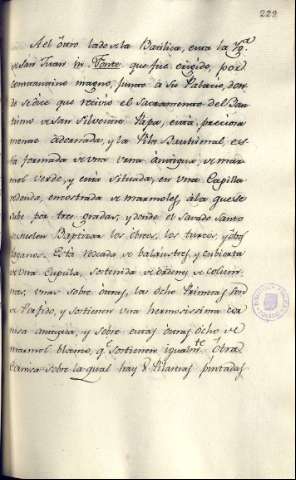 229
Al otro lado de la Basilica, esta la Ygª
de San Juan in Fonte, que fue erigido, por
Constantino magno, junto à su Palacio, don
de se dice que recivio el Sacramento del Bau
tismo de San Silvestro Papa, esta preciosa
mente adornada, y la Pila Bautismal, es
ta formada de una urna antigua, de mar
mol verde, y esta situada, en una Capilla
redonda, encostrada de marmoles, à la que se
sube por tres gradas, y donde el Savado Santo
se suelen Baptizar los ebreos, los turcos, y otros
paganos. Està cercado de balaustres, y cubierta
de una Cupula, sostenida de ordenes de colum
nas, unas sobre otras, las ocho primeras son
de Porfido, y sostienen una hermosisima cor
nisa antigua, y sobre estas otras ocho de
marmol blanco, qᵉ sostienen igualmᵗᵉ otra
Cornisa sobre la qual hay 8 Pilastras pintadas